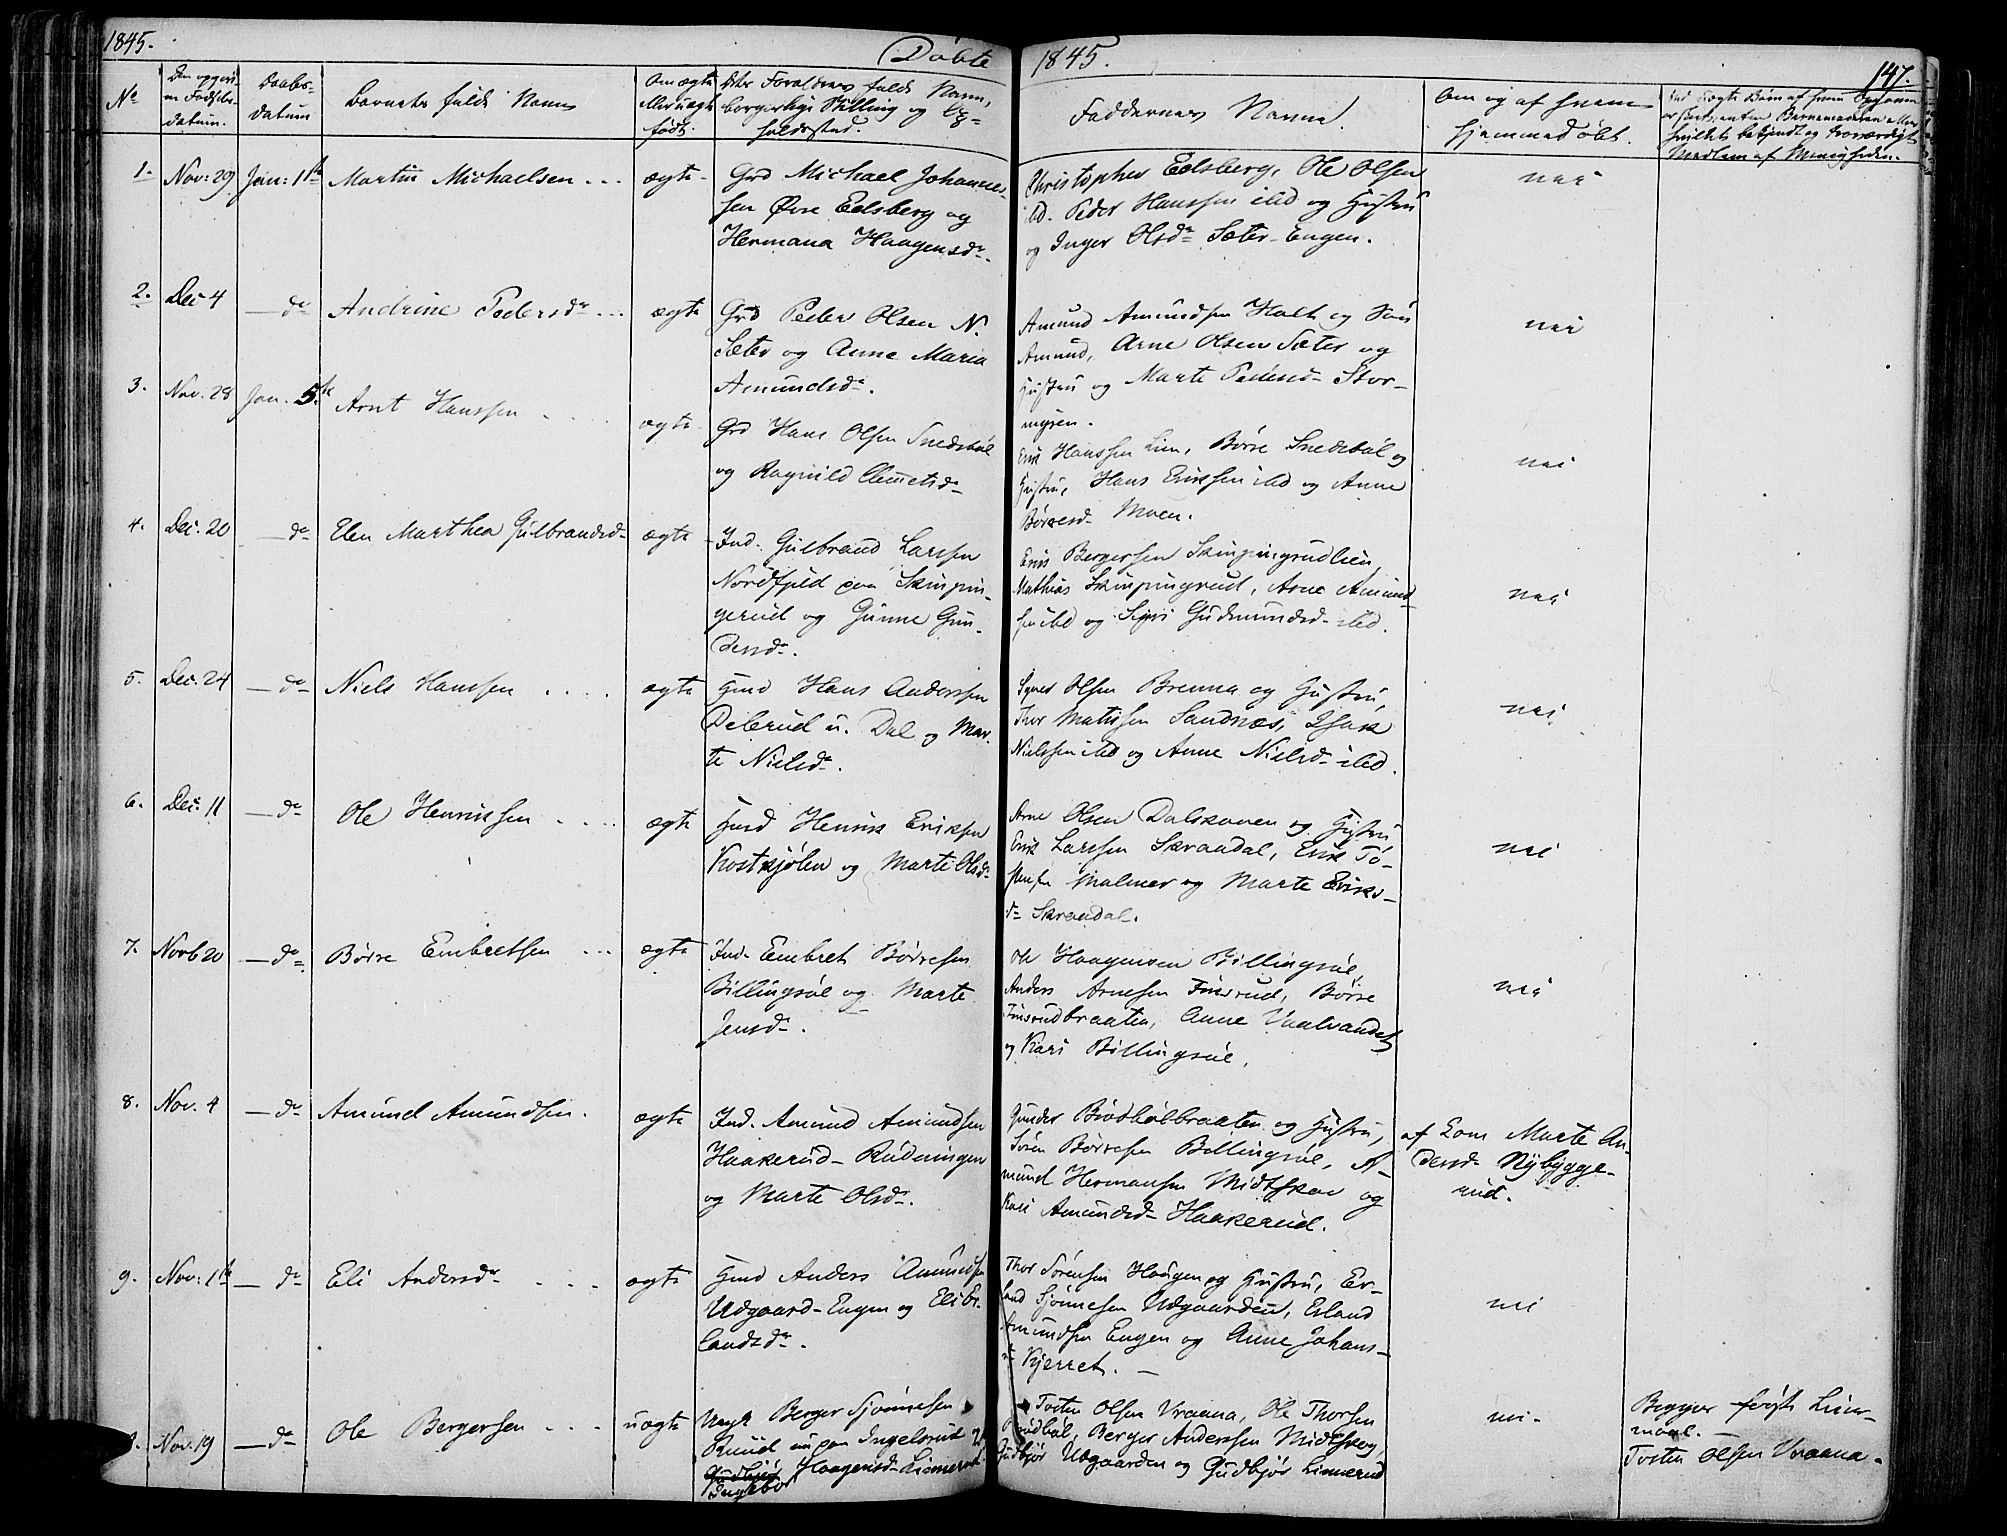 1845.
Døbte
1845.
147.
No
Den opgivne Fødsels-datum.
Daabs-datum
Barnets fulde Navn
Om ægte eller uægte født.
Forældres fulde Navn, borgerlige Stilling og Op=holdssted.
Faddernes Navne.
Om og af hvem hjemmedøbt.
1. Nov: 29 Jan: 1ste Martin Michaelsen ægte Grd Michael Johannes-
sen Øvre Eelsberg og
Hermana Haagensdr.
Christopher Eelsberg, Ole Olsen
ibd. Peder Hanssen ibd og Hustru
og Inger Olsdr Sæter-Engen.
nei
2. Dec 4 do Andrine Pedersdr ægte Grd Peder Olsen N.
Sæter og Anne Maria
Amundsdr.
Amund Amundsen Holt og
Amund, Arne Olsen Sæter og
Hustru og Marte Pedersdr Stor-
myren.
nei
3. Nov. 28 Jan. 5te Arnt Hanssen ægte Grd Hans Olsen Snedsbøl
og Ragnild Clemetsdr
Erik Hanssen Lien, Børre Snedsbøl og
Hustru, Hans Erikssen ibd og Anne
Børresdr Moen.
nei
4. Dec. 20 do Elen Marthea Gulbrandsd ægte Ind. Gulbrand Larssen
Nordfjeld paa Skinpin-
gerud og Gunne Gun-
dersdr.
Erik Bergersen Skinpingrudlien
Mathias Skinpingrud, Arne Amund-
sen ibd og Sigri Gudmundsd ibd.
nei
5. Dec. 24 do Niels Hanssen ægte Husd Hans Anderssen
Deberud u. Dal og Mar-
te Nielsdr.
Olsen Brenna og Hustru,
Thor Mathssen Sandnæs, Isak
Nielssen ibd og Anne Nielsdr ibd.
nei
6. Dec. 11 do Ole Henrikssen ægte Husd Henrik Eriksen
Kostkjølen og Marte Olsdr
Arne Olsen Dalskauen og Hustru
Erik Larssen Skraadal, Erik To-
stensen Malmer og Marte Eriks-
dr Skraadal.
nei
7. Novb 20 do Børre Embretsen ægte Ind. Embret Børresen
Billingsøe og Marte
Jensdr.
Ole Haagensen Billingsøe,
Anders Arnesen Finsrud, Børre
Finsrudbraaten, Anne Vaalvandet
og Kari Billingsøe.
nei
8. Nov. 4 do Amund Amundsen. ægte Ind. Amund Amundsen
Haakerud-Rudningen
og Marte Olsdr.
Gunder Brødbølbraaten og Hustru,
Søren Børresen Billingsøe, A-
mund Hermansen Midtskov og
Kari Amundsdr Haakerud.
af Marte An-
dersdr Nybygge-
rud.
9. Nov: 1ste do Eli Andersdr ægte Husd Anders Amundsen
Udgaard-Engen og Eli Er-
landsdr.
Thor Sørensen Haugen og Hustru, Er-
land Sjønnesen Udgaarden, Erland
Amundsen Engen og Anne Johans-
dr Kjerret.
nei
Nov. 19 do Ole Bergersen uægte Ungk Berger Sjønnesen
Ruud nu paa Ingelsrud
Gudbjør Haagensdr Linnerud
Ingebor
Tosten Olsen Vraana, Ole Thorsen
Berger Anderssen Midtskog
Gudbjør Udgaarden og Gudbjør Linnerud
nei
Begges første Leier-
maal.
Tosten Olsen Vraana.